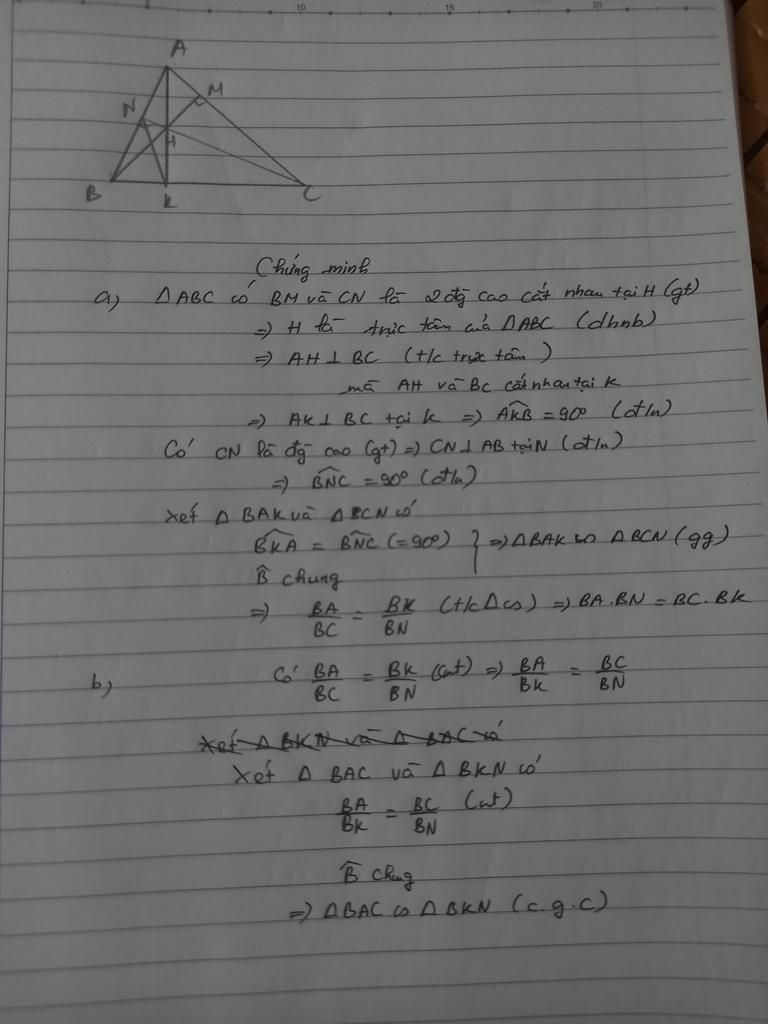 10 15 20
A
N M
H
B K C
Chứng minh
a, ΔABC có BM và CN là 2 đg cao cắt nhau tại H (gt)
=> H là trực tâm của ΔABC (dhnb)
=> AH ⊥ BC (t/c trực tâm)
mà AH và BC cắt nhau tại K
=> AK ⊥ BC tại K => \widehat{AKB} = 90° (đ/n)
Có CN là đg cao (gt) => CN ⊥ AB tại N (đ/n)
=> \widehat{BNC} = 90° (đ/n)
Xét Δ BAK và Δ BCN có
\widehat{BKA} = \widehat{BNC} (=90°) } => ΔBAK ∽ ΔBCN (gg)
\widehat{B} chung
=> BA/BC = BK/BN (t/c Δ∽) => BA.BN = BC.BK
b, Có BA/BC = BK/BN (cmt) => BA/BK = BC/BN
Xét Δ BKN và Δ BAC có
Xét Δ BAC và Δ BKN có
BA/BK = BC/BN (cmt)
\widehat{B} chung
=> ΔBAC ∽ ΔBKN (c.g.c)